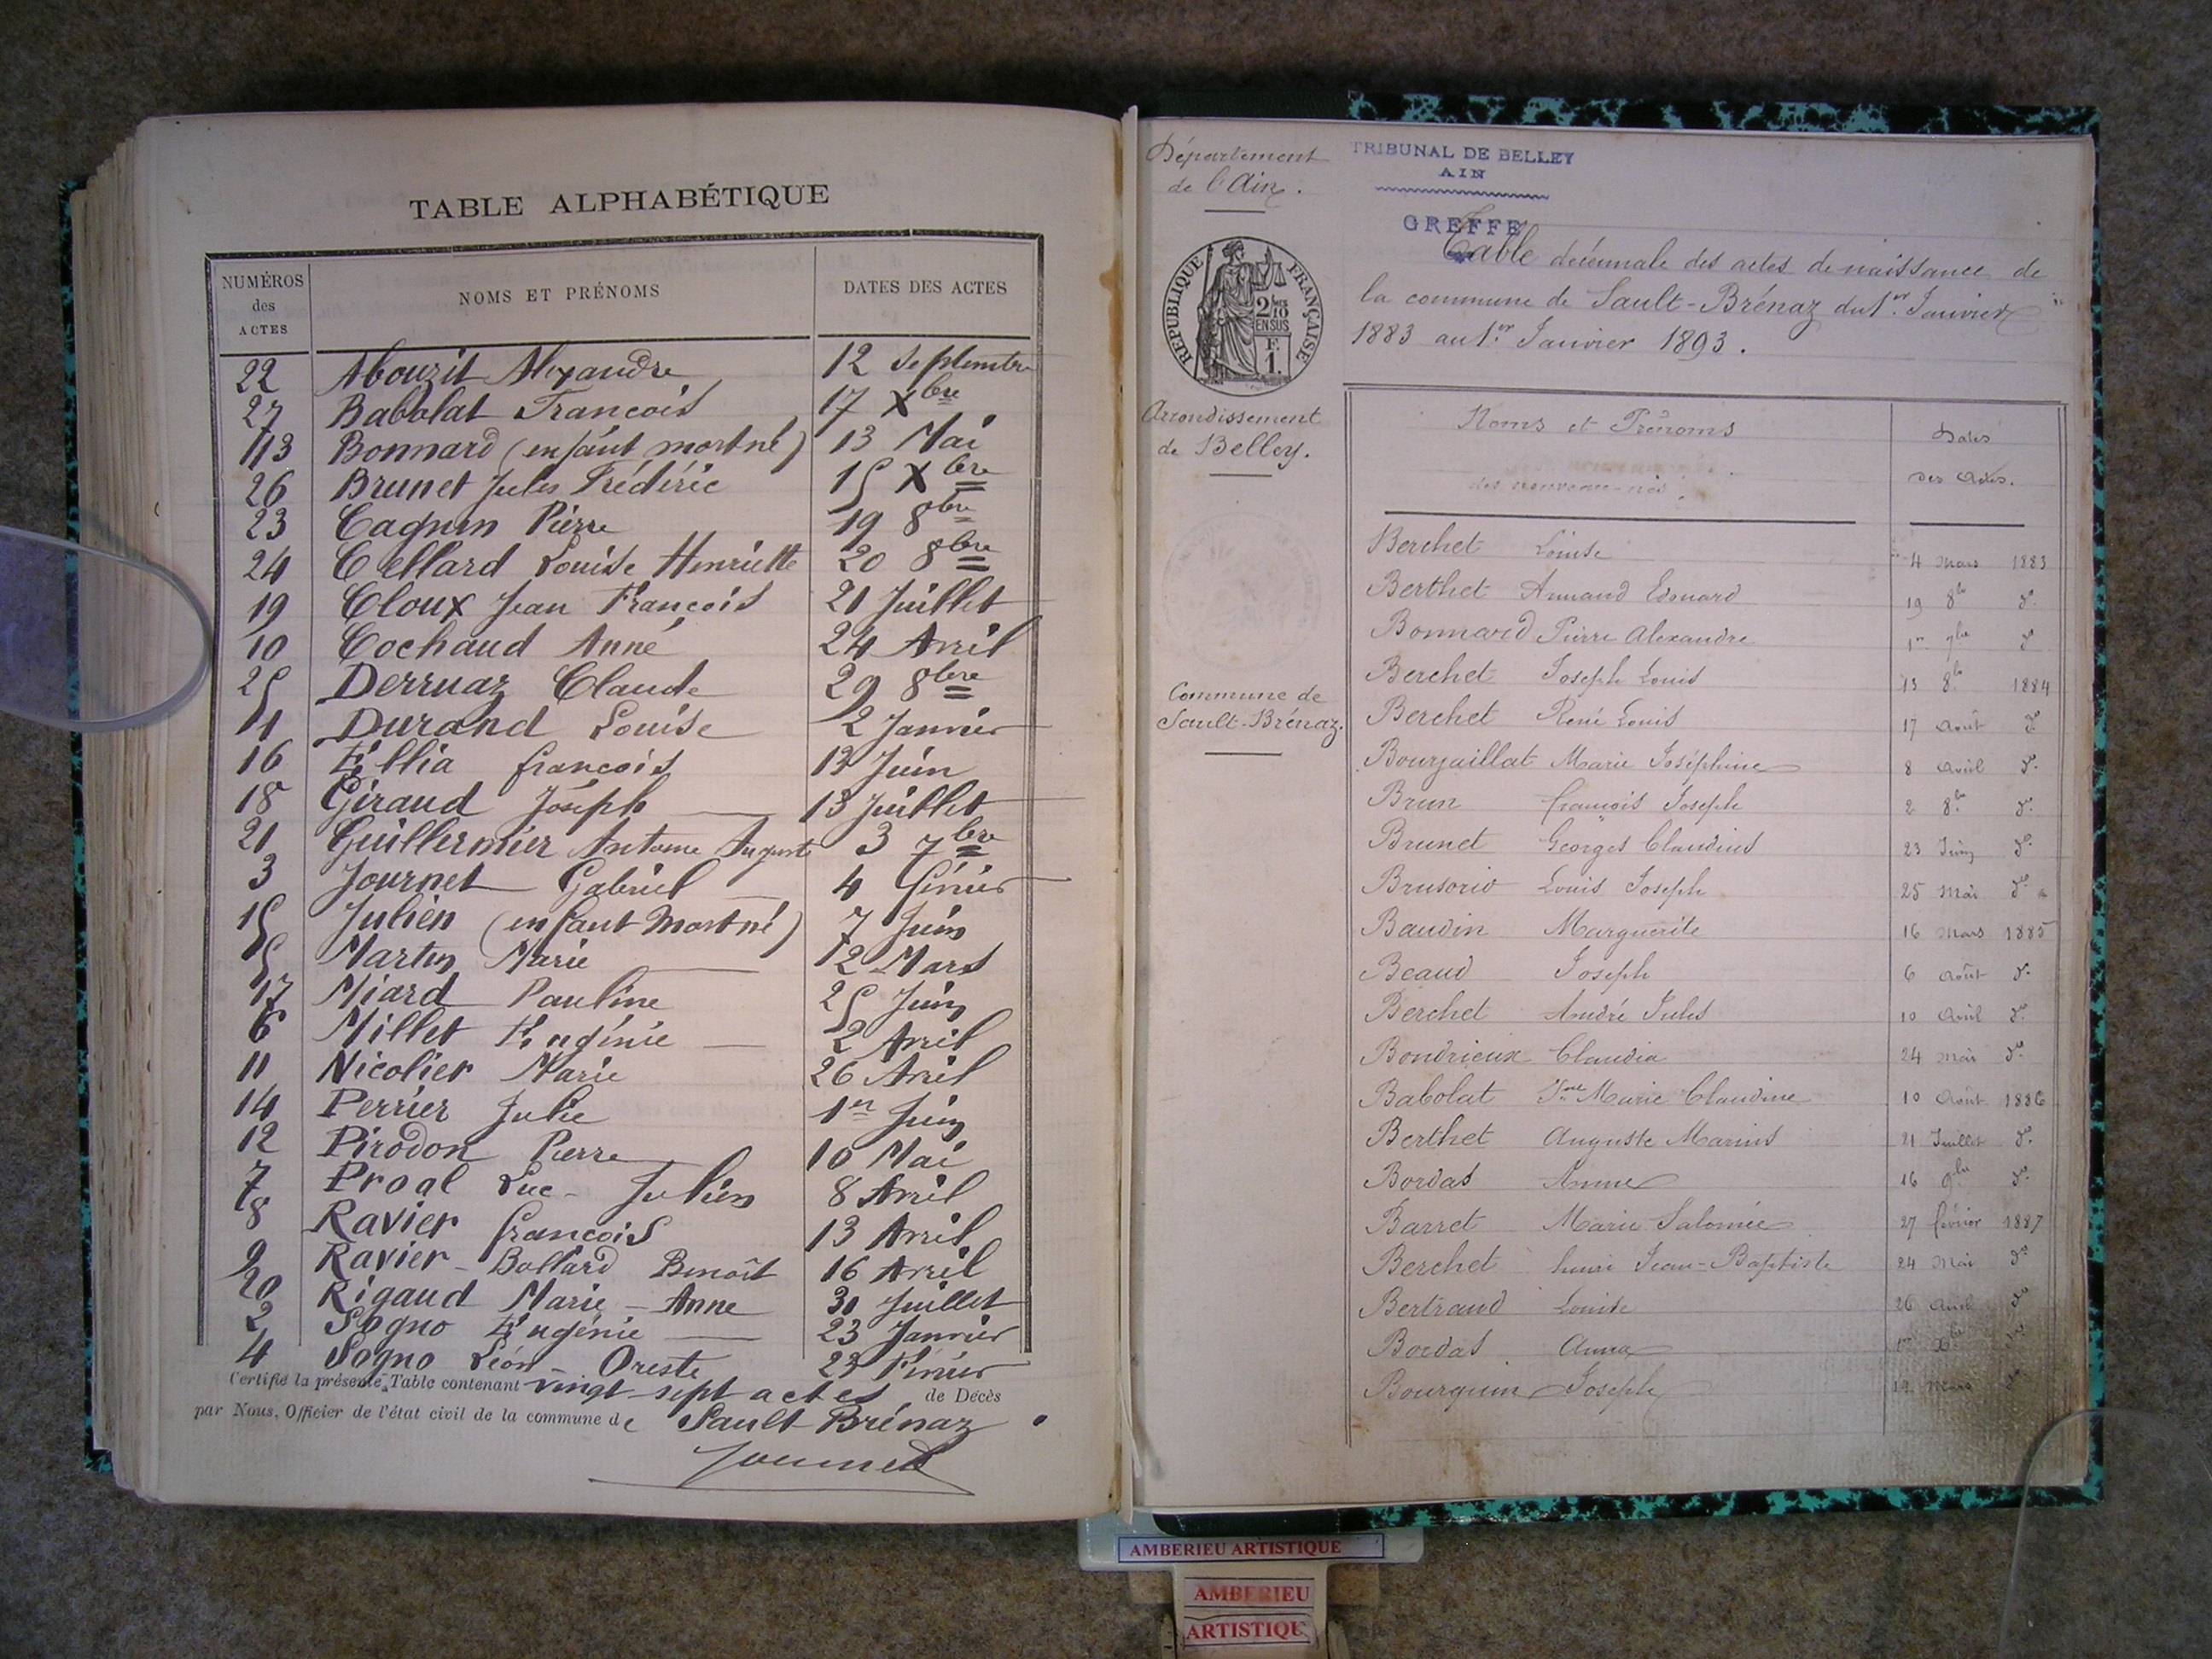 TABLE ALPHABÉTIQUE
NUMÉROS des ACTES NOMS ET PRÉNOMS DATES DES ACTES
22 Abouzit Alexandre 12 Septembre
27 Babolat François 17 Xbre
13 Bonnard (enfant mort né) 13 Mai
26 Brunet Jules Frédéric 15 Xbre
23 Cagnin Pierre 19 8bre
24 Cellard Louise Henriette 20 8bre
19 Cloux Jean François 21 Juillet
10 Cochaud Anné 24 Avril
25 Derruaz Claude 29 8bre
1 Durand Louise 2 Janvier
16 Ellia françois 13 Juin
18 Giraud Joseph 13 Juillet
21 Guillermier Antoine Auguste 3 7bre
3 Journet Gabriel 4 Février
15 Julien (enfant Mort né) 7 Juin
5 Martin Marie 12 Mars
17 Miard Pauline 25 Juin
6 Millet Eugénie 2 Avril
11 Nicolier Marie 26 Avril
14 Perrier Julie 1er Juin
12 Pirodon Pierre 10 Mai
7 Proal Luc - Julien 8 Avril
8 Ravier françois 13 Avril
9 Ravier - Bollard Benoît 16 Avril
20 Rigaud Marie - Anne 30 Juillet
2 Sogno Eugénie 23 Janvier
4 Sogno Léon - Oreste 23 Février
Certifié la présente Table contenant vingt-sept actes de Décès
par Nous, Officier de l'état civil de la commune de Sault-Brénaz
Journet
Département
de l'Ain.
TRIBUNAL DE BELLEY
AIN
GREFFE
RÉPUBLIQUE FRANÇAISE
2/10
EN SUS
F.
1.
Table décennale des actes de naissance de
la commune de Sault-Brénaz du 1er Janvier
1883 au 1er Janvier 1893.
Arrondissement
de Belley.
Commune de
Sault-Brénaz.
Noms et Prénoms
des nouveau-nés.
Dates
des Actes.
Berchet Louise 4 Mars 1883
Berthet Armand Edouard 19 8bre do
Bonnard Pierre Alexandre 1er 7bre do
Berchet Joseph Louis 13 8bre 1884
Berchet René Louis 17 Août do
Bourjaillat Marie Joséphine 8 Avril do
Brun françois Joseph 2 8bre do
Brunet Georges Claudius 23 Juin do
Brusorio Louis Joseph 25 Mai do
Baudin Marguerite 16 Mars 1885
Beaud Joseph 6 Août do
Berchet André Jules 10 Avril do
Bondrieux Claudia 24 Mai do
Babolat Marie Claudine 10 Août 1886
Berthet Auguste Marius 21 Juillet do
Bordas Anne 16 9bre do
Barret Marie Salomée 27 février 1887
Berchet henri Jean-Baptiste 24 Mai do
Bertrand Louise 26 do
Bordas Anna 1er Xbre do
Bourguin Joseph 12 Mars do
AMBERIEU ARTISTIQUE
AMBERIEU
ARTISTIQUE